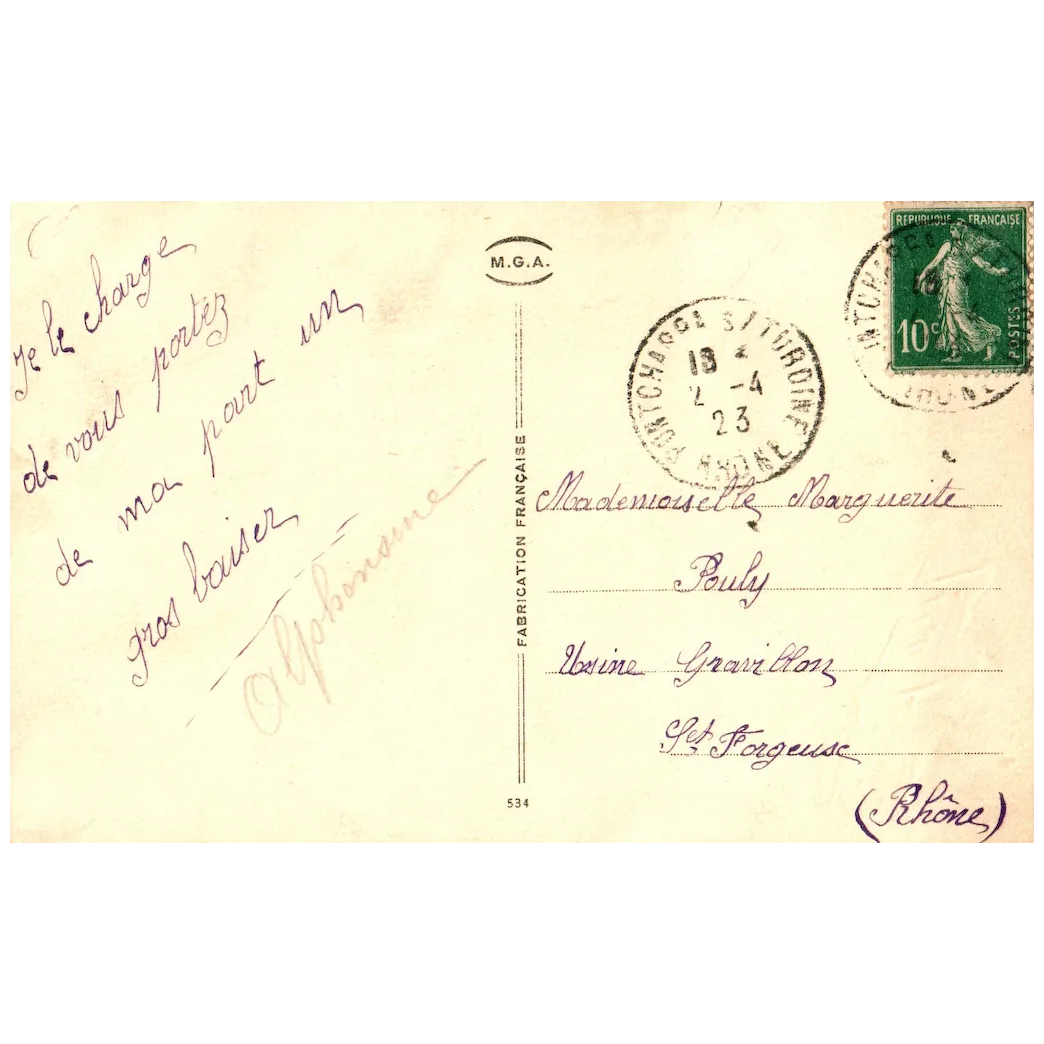 Je le charge
de vous portez
de ma part un
gros baiser
Alphonsine
M.G.A.
FABRICATION FRANÇAISE
534
REPUBLIQUE FRANÇAISE
10c
POSTES
PONTCHARRA S/TURDINE
18
2 -4
23
RHÔNE
Mademoiselle Marguerite
Pouly
Usine Gravillon
St Forgeuse
(Rhône)